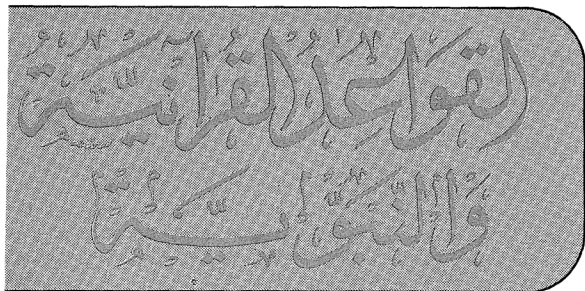 القَوَاعِدُ القُرْآنِيَّةُ
وَالنَّبَوِيَّةُ